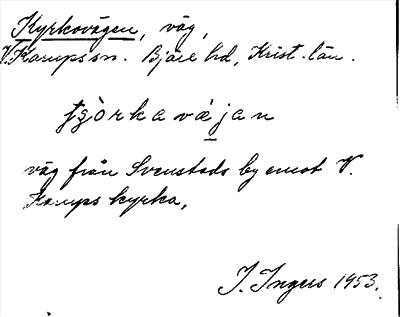 Kyrkovägen, väg,
V. Karups sn. Bjäre hd, Krist. län.
väg från Svenstads by emot V.
Karups kyrka,
I. Ingers 1953.